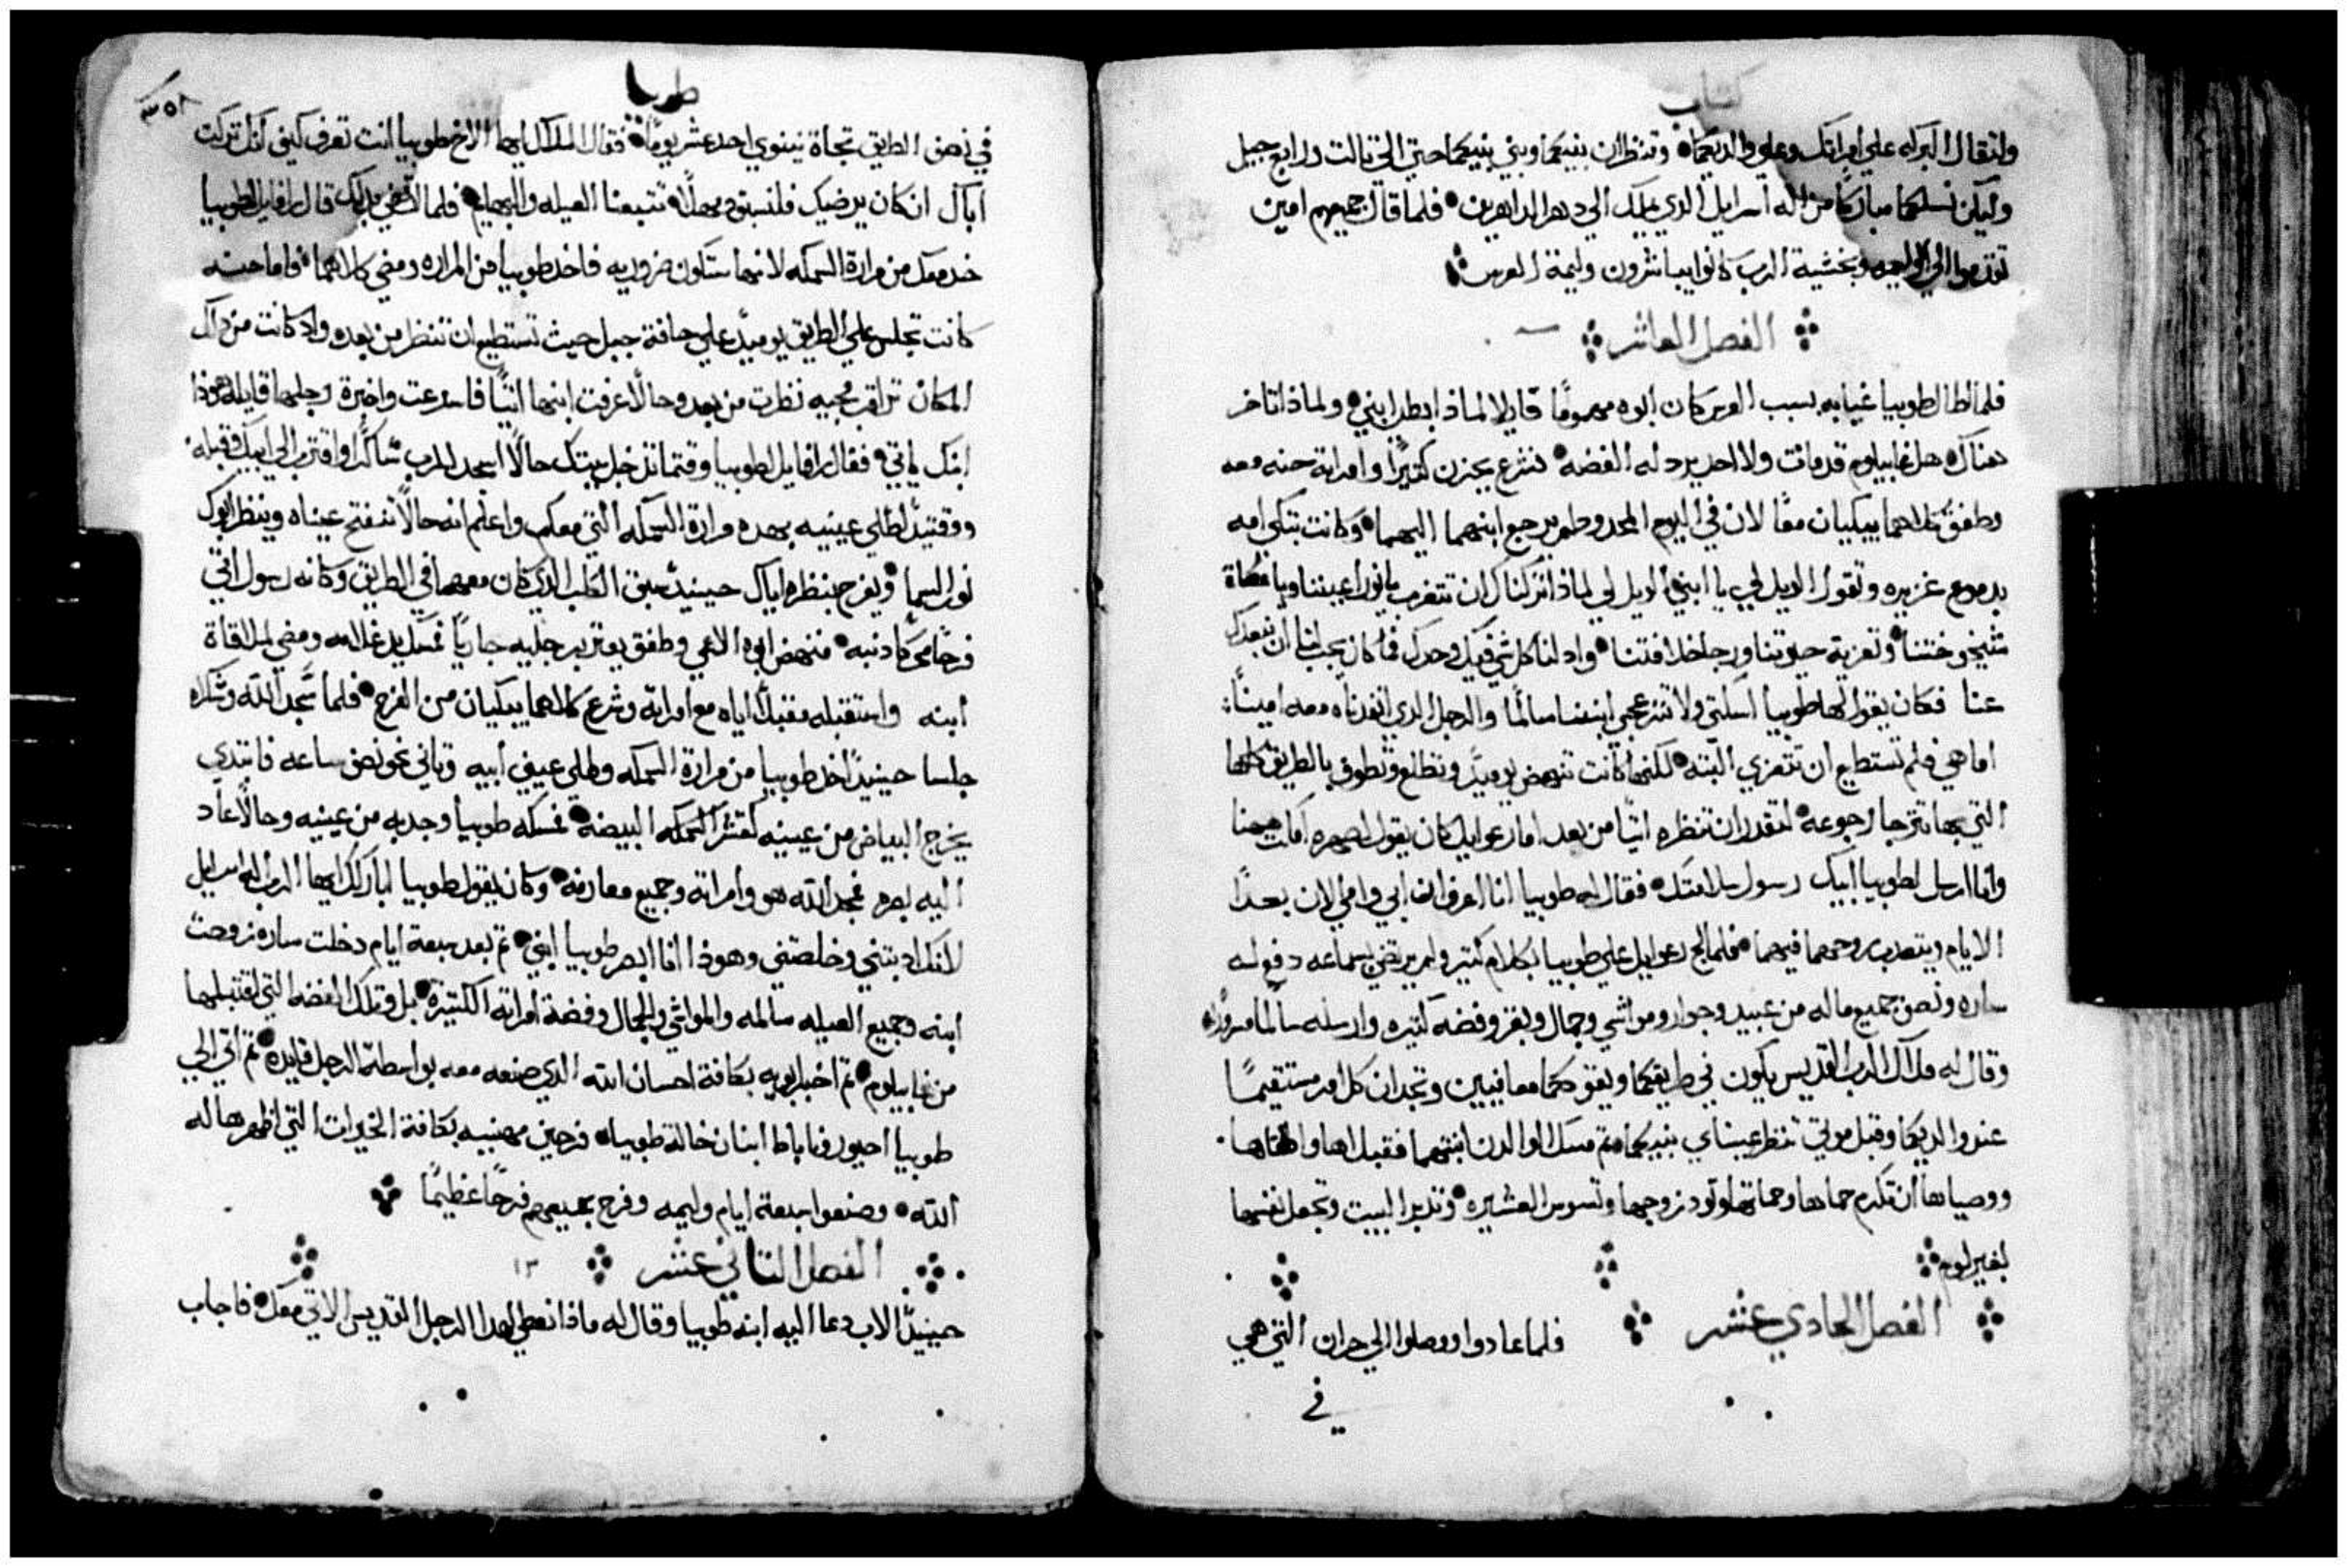 كتاب
ولتقال البركه علي امراتك وعلي والديكما وتنظران بنيكما وبني بنيكما حتي الي تالت ورابع جيل
وليكن نسلكما مباركًا من اله اسرايل الذي يملك الي دهر الداهرين فلما قال جميعهم امين
تقدموا الي الوليمه وبخشية الرب كانوا يباشرون وليمة العرس
الفصل العاشر
فلما اطال طوبيا غيابه بسبب العرس كان ابوه مهمومًا قايلا لماذا ابطا ابني ولماذا تاخر
هناك هل غابيلوم قد مات ولا احد يرد له الفضه فشرع يحزن كتيرًا وامراته حنه معه
وطفق كلاهما يبكيان معًا لان في اليوم المحدود لم يرجع ابنهما اليهما وكانت تبكي امه
بدموع غزيره وتقول الويل لي يا ابني الويل لي لماذا تركناك ان تتغرب يا نور اعيننا ويا عكازة
شيخوختنا وتعزية حيوتنا ورجا خلافتنا واد لنا كل شي فيك وحدك فما كان يجب لنا ان نبعدك
عنا فكان يقول لها طوبيا اسكتي ولا تنزعجي ابننا سالمًا والرجل الذي انفدناه معه امينًا
اما هي فلم تستطيع ان تتعزي البته لكنها كانت تنهض يوميًا وتطلع وتطوف بالطريق كلها
التي بها تترجا رجوعه لتقدر ان تنظره اتيًا من بعد اما رعوايل كان يقول لصهره امكت هيهنا
وانا ارسل لطوبيا ابيك رسول سلامتك فقال له طوبيا انا اعرف ان ابي وامي الان بعدا
الايام ويتعدب روحهما فيهما فلما لج رعوايل علي طوبيا بكلام كتير ولم يرتضي بسماعه دفع له
ساره ونصف جميع ماله من عبيد وجوار ومواشي وجمال وبقر وفضه كتيره وارسله سالمًا مسرورًا
وقال له ملاك الرب القديس يكون في طريقكما ويقودكما معافيين وتجدان كل امر مستقيمًا
عند والديكما وقبل موتي تنظر عيناي بنيكما تم مسك الوالدن ابنتهما فقبلاها واطلقاها
ووصياها ان تكرم حماها وحماتها وتود زوجها وتسوس العشيره وتدبر البيت وتجعل نفسها
بغير لوم
الفصل الحادي عشر فلما عادوا ووصلوا الي حران التي هي
في
طوبيا
٣٥٨
في نصف الطريق تجاة نينوي احد عشر يومًا فقال الملاك ايها الاخ طوبيا انت تعرف كيف انك تركت
اباك ان كان يرضيك فلنسبق ومهلًا تتبعنا العيله والبهايم فلما ارتضي بدلك قال رافايل لطوبيا
خد معك من مرارة السمكه لانها ستكون ضروريه فاخد طوبيا من المراره ومضي كلاهما فاما حنه
كانت تجلس علي الطريق يوميًا علي حافة جبل حيث تستطيع ان تنظر من بعد واد كانت من داك
المكان تراقب مجيه نظرت من بعد وحالًا عرفت ابنها اتيًا فاسرعت واخبرة رجلها قايله هوذا
ابنك ياتي فقال رافايل لطوبيا وقتما تدخل بيتك حالًا اسجد للرب شاكرًا واقترب الي ابيك وقبله
ووقتيد اطلي عينيه بهده مرارة السمكه التي معك واعلم انه حالًا تنفتح عيناه وينظر ابوك
نور السما ويفرح بنظره اياك حينيد سبق الكلب الذي كان معهما في الطريق وكانه رسول اتي
فرحًا محركًا دنبه فنهض ابوه الاعمي وطفق يعتر برجليه جاريًا فمسك يد غلامه ومضي لملاقاة
ابنه واستقبله مقبلًا اياه مع امراته وشرع كلاهما يبكيان من الفرح فلما سجدا لله وشكراه
جلسا حينيدًا اخد طوبيا من مرارة السمكه وطلي عيني ابيه وتاني نحو نصف ساعه فابتدي
يخرج البياض من عينيه كقشر السمكه البيضه فمسكه طوبيا وجدبه من عينيه وحالًا عاد
اليه بصره فمجد الله هو وامراته وجميع معارفه وكان يقول طوبيا اباركك ايها الرب اله اسرايل
لانك ادبتني وخلصتني وهوذا انا ابصر طوبيا ابني تم بعد سبعة ايام دخلت ساره زوجت
ابنه وجميع العيله سالمه والمواشي والجمال وفضة امراته الكتيرة بل وتلك الفضه التي اقتبلها
من غابيلوم تم اخبر ابويه بكافة احسان الله الذي صنعه معه بواسطة الرجل قايده تم اتي الي
طوبيا احيور ونابابط ابنان خالة طوبيا فرحين مهنييه بكافة الخيرات التي اظهرها له
الله وصنعوا سبعة ايام وليمه وفرح جميعهم فرحًا عظيمًا
الفصل التاني عشر ١٢
حينيدً الاب دعا اليه ابنه طوبيا وقال له ماذا نعطي لهدا الرجل القديس الاتي معك فاجاب